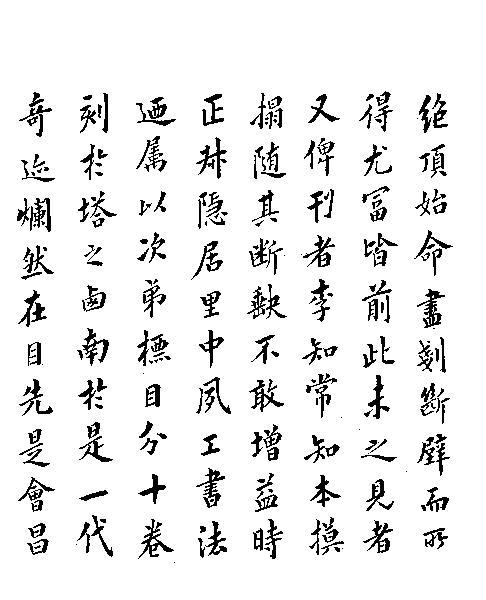 絶頂始命盡剗斷壁而所
得尤冨皆前此未之見者
又俾刊者李知常知本摸
搨随其断缺不敢增益時
正叔隐居里中夙工書法
廼属以次弟標目分十卷
刻於塔之鹵南於是一代
奇迹爛然在目先是會昌